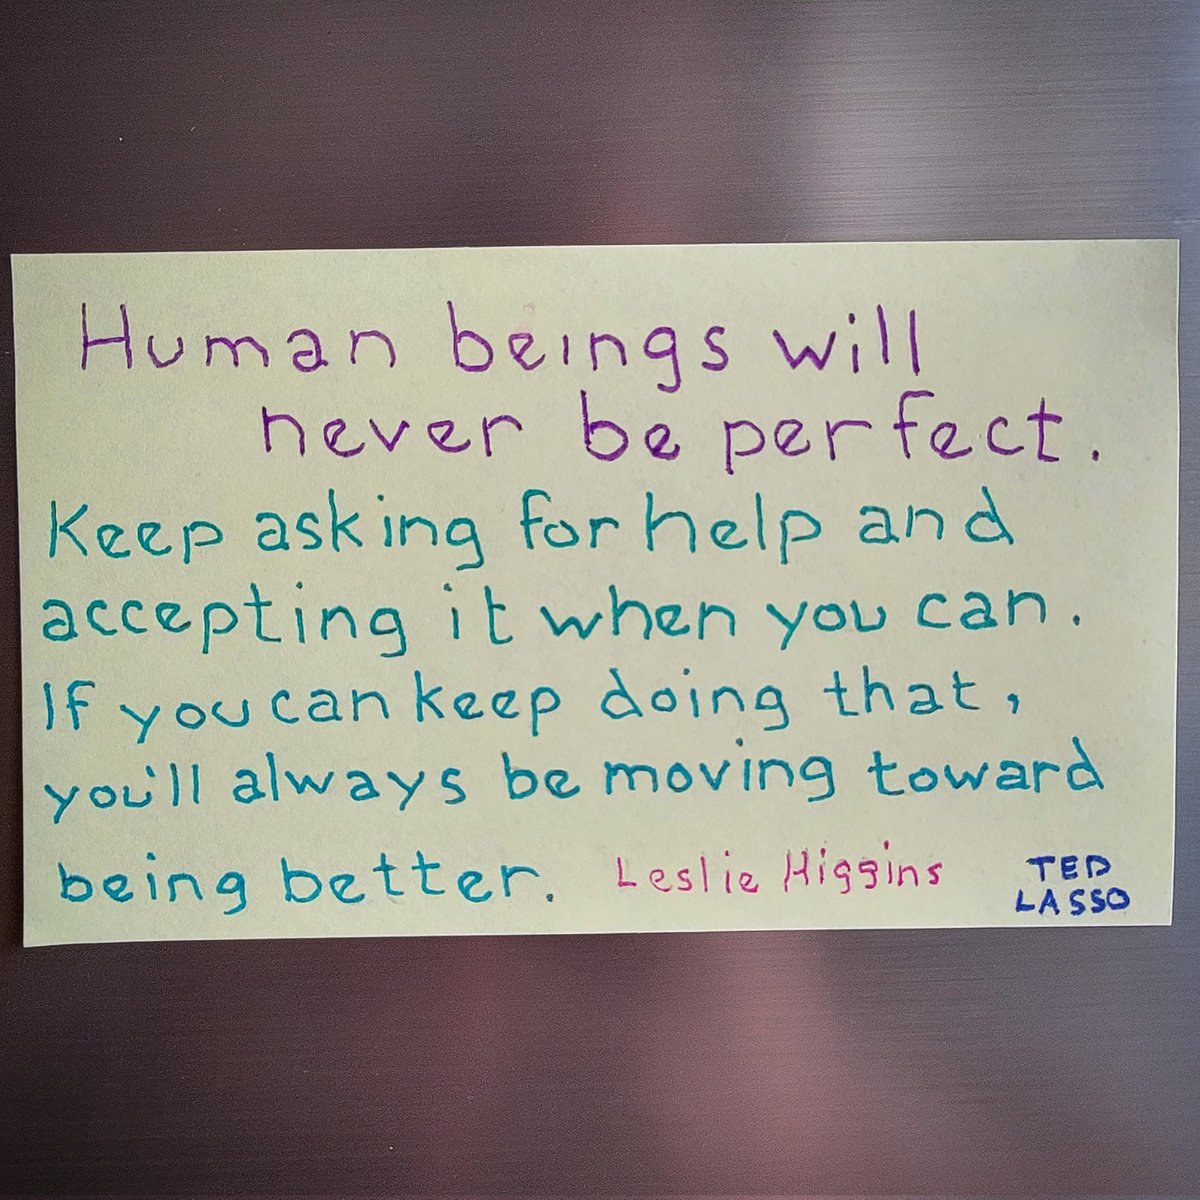 Human beings will
never be perfect.
Keep asking for help and
accepting it when you can.
If you can keep doing that,
you'll always be moving toward
being better. Leslie Higgins
TED
LASSO